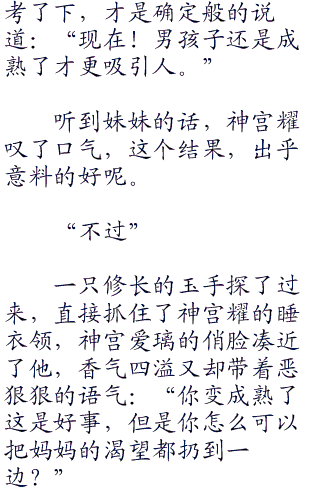 考了下，才是确定般的说
道：“现在！男孩子还是成
熟了才更吸引人。”
听到妹妹的话，神宫耀
叹了口气，这个结果，出乎
意料的好呢。
“不过”
一只修长的玉手探了过
来，直接抓住了神宫耀的睡
衣领，神宫爱璃的俏脸凑近
了他，香气四溢又却带着恶
狠狠的语气：“你变成熟了
这是好事，但是你怎么可以
把妈妈的渴望都扔到一
边？”